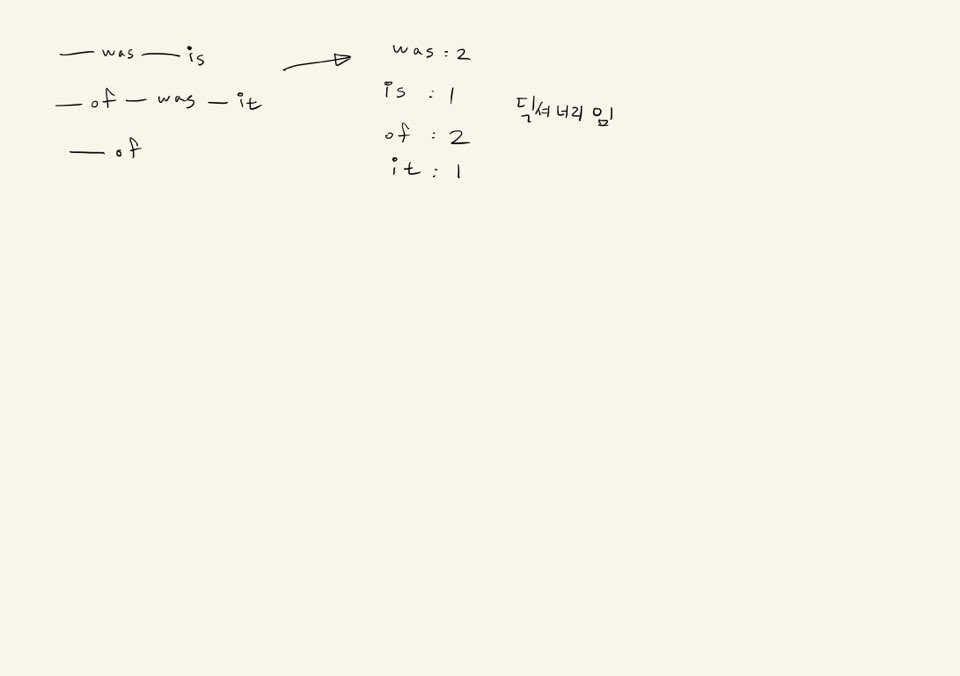 — was — is
— of — was — it
— of
was : 2
is : 1
of : 2
it : 1
딕셔너리임